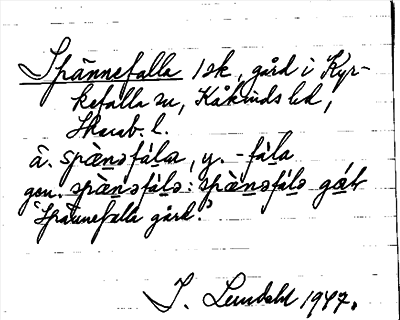 Spännefalla 1 sk, gård i Kyr-
kefalla sn, Kåkinds hd,
Skarab. l.
ä. spàṉəfàla, y. -fàla
gen. spàṉəfálə: spàṉəfálə gá̱ɽ
"Spännefalla gård."
J. Lundahl 1947.